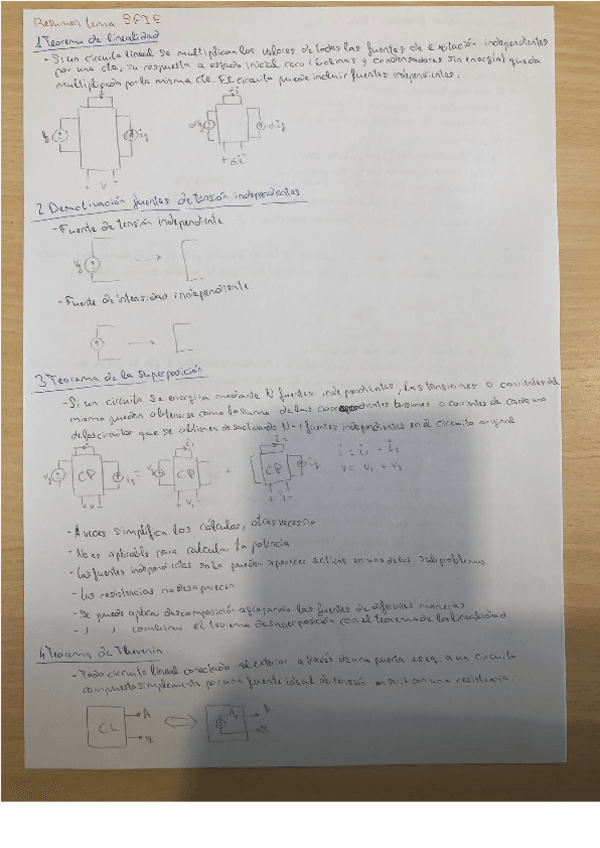 Resumen tema SFIE
1 Teorema de linealidad
- Si un circuito lineal se multiplican los valores de todas las fuentes de excitación independientes
por una cte, su respuesta a estado inicial cero (bobinas y condensadores sin energía) queda
multiplicada por la misma cte. El circuito puede incluir fuentes independientes.
i αi
Vg ig αVg αig
+ V -
2 Desactivación fuentes de tensión independientes
- Fuente de tensión independiente
Vg
- Fuente de intensidad independiente
3 Teorema de la superposición
- Si un circuito se energiza mediante N fuentes independientes, las tensiones o corrientes del
mismo pueden obtenerse como la suma de las correspondientes tensiones o corrientes de cada uno
de los circuitos que se obtienen desactivando N-1 fuentes independientes en el circuito original
Vg CP ig = Vg CP + CP ig
+ V - + V₁ - + V₂ -
V = V₁ + V₂
- A veces simplifica los cálculos, otras veces no
- No es aplicable para calcular la potencia
- Las fuentes independientes solo pueden aparecer activas en uno de los subproblemas
- Las resistencias no desaparecen
- Se puede aplicar descomposición agrupando las fuentes de diferentes maneras
- " " combinar el teorema de superposición con el teorema de la linealidad
4 Teorema de Thevenin
- Todo circuito lineal conectado al exterior a través de una puerta es eq. a un circuito
compuesto simplemente por una fuente ideal de tensión en serie con una resistencia.
CL A A
B B